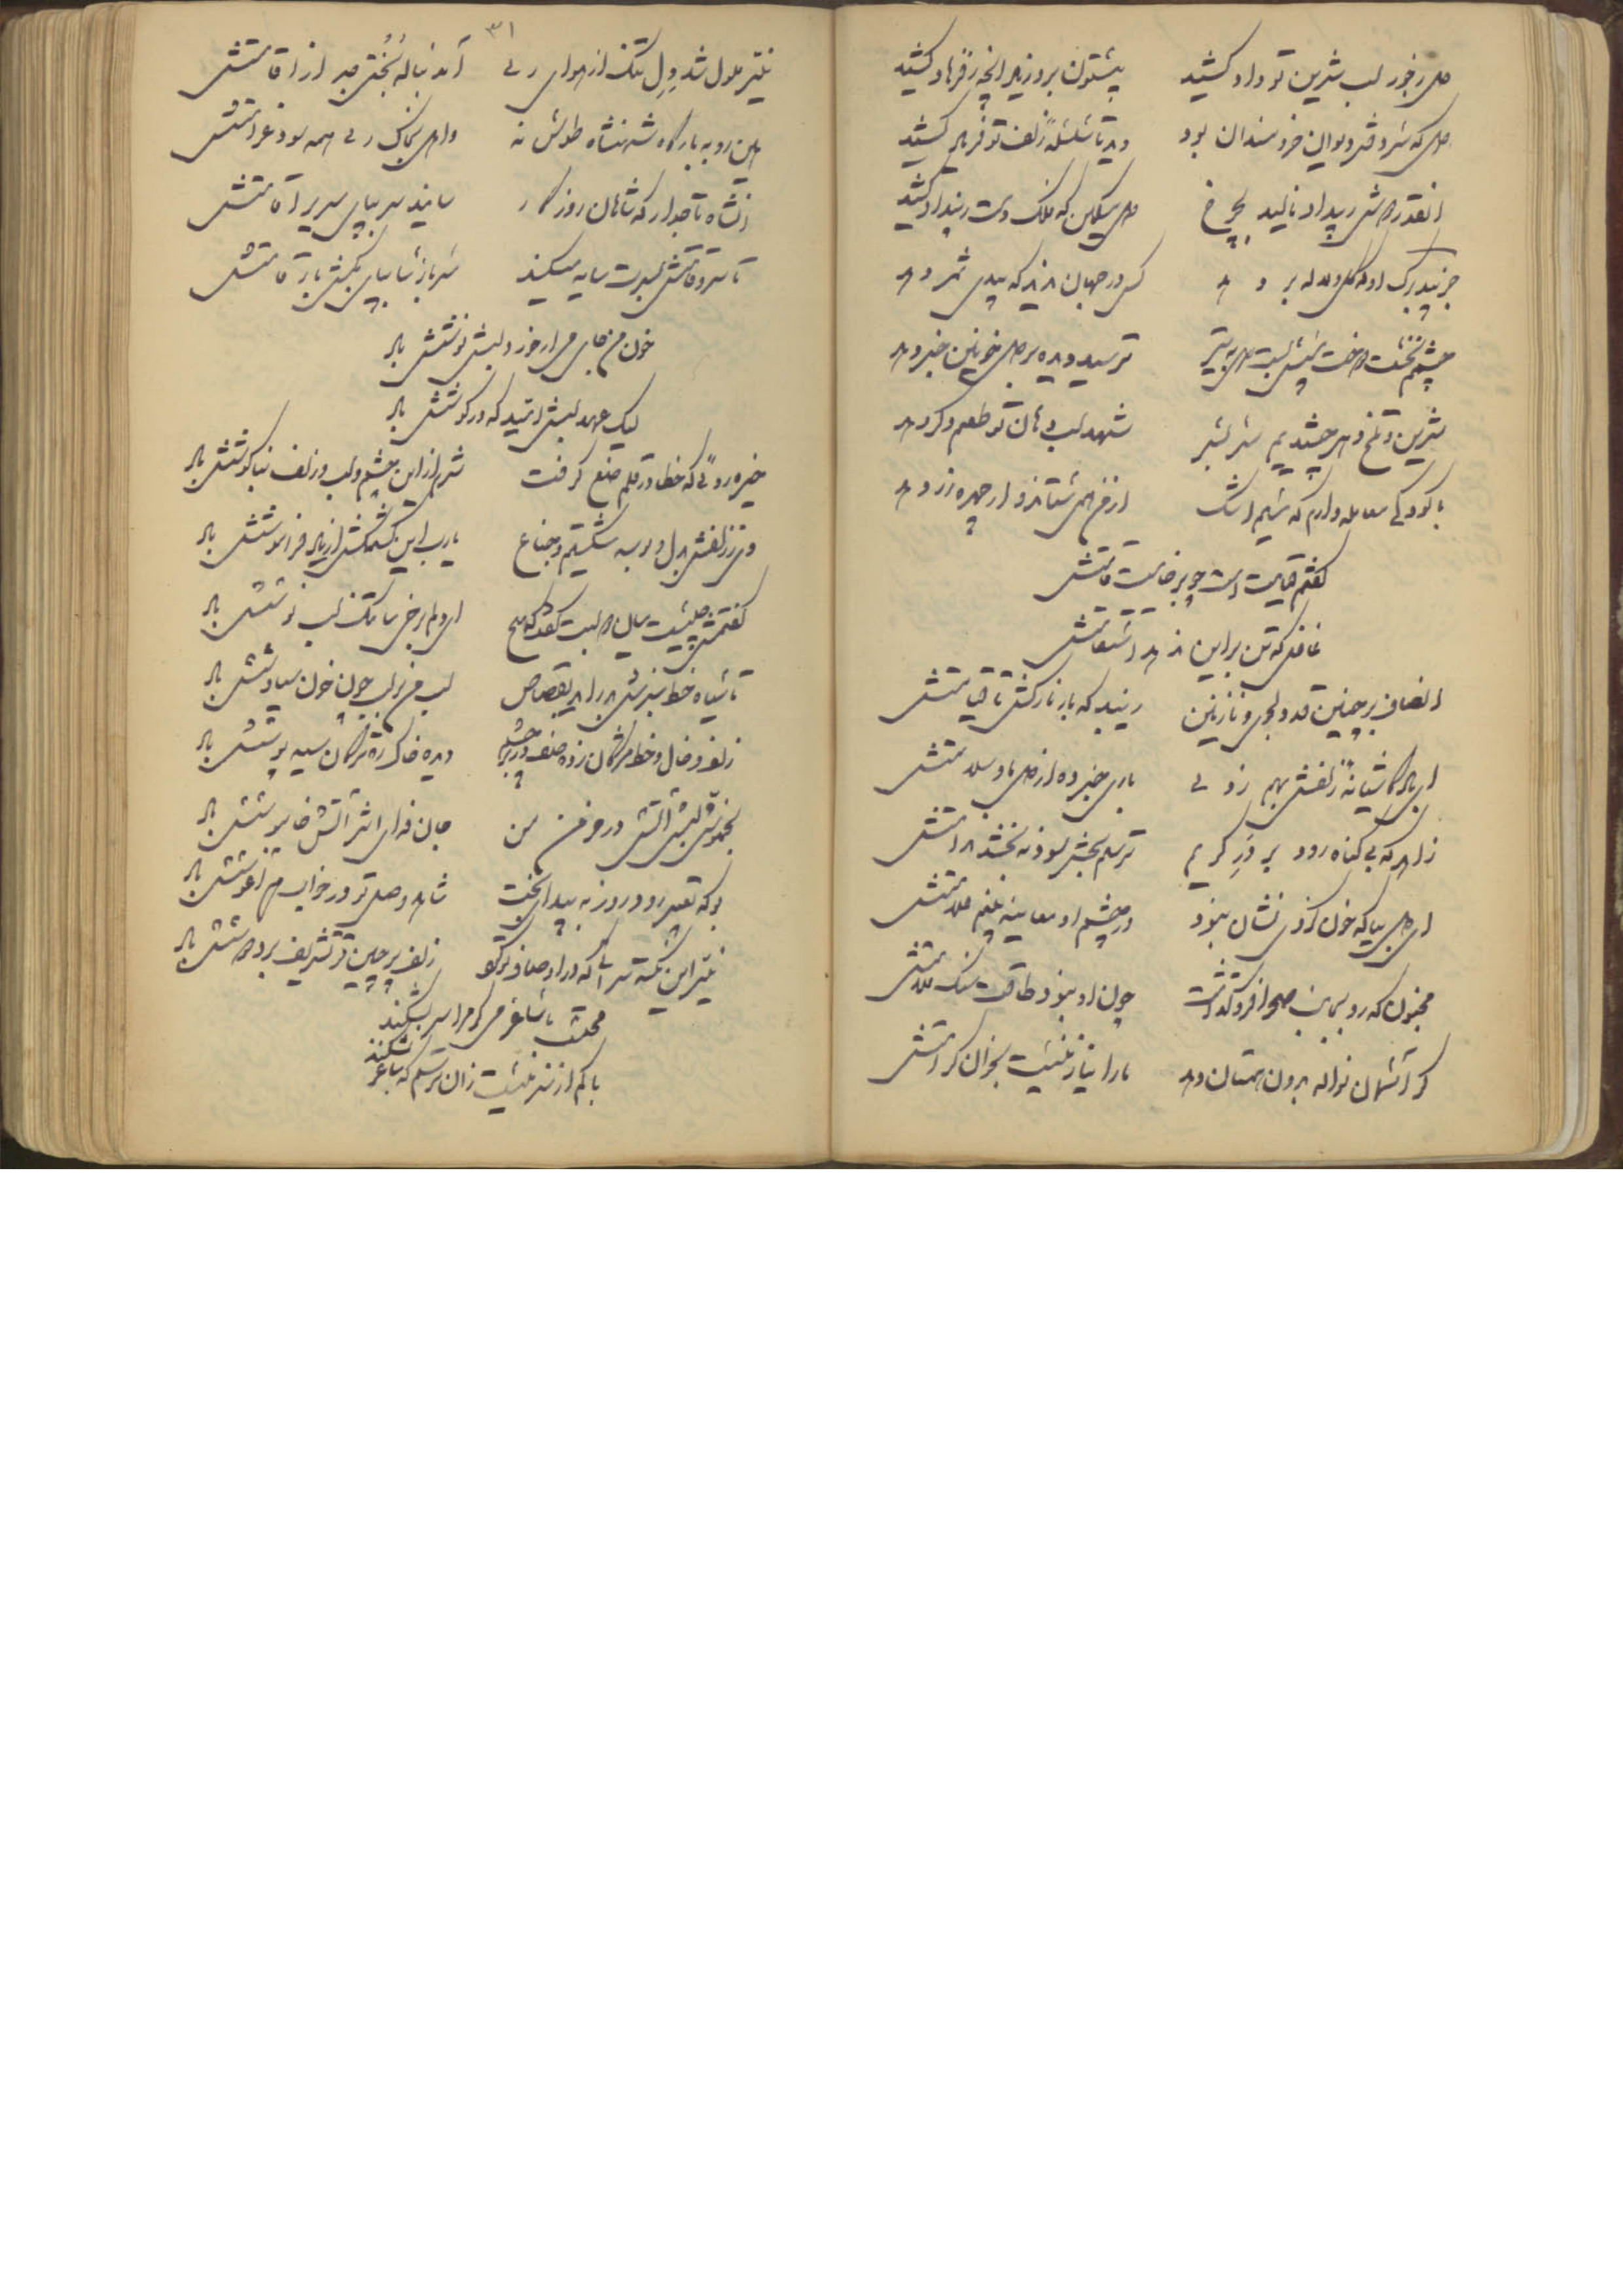 دل رنجور لب شیرین تو داد کشید بیستون بر و زیر آنچه ز فرهاد کشید
دل که سر دفتر دیوان خردمندان بود دید تا سلسله زلف تو فریاد کشید
آنقدر دل ز بیداد نالید بچرخ دل مسکین که فلک دست ز بیداد کشید
جز بید برگ او که گل و لاله بر دهد کس در جهان ندید که بیدی ثمر دهد
چشمم نخست دوخت سپس بست دل به تیر ترسید دیده بر دل خونین خبر دهد
شیرین و تلخ دهر چشیدیم سر بسر شهد لب و دهان تو طعم دگر دهد
با کودکی معامله دارم که سیم اشک از من همی ستاند و از چهره زر دهد
گفتم قیامت است چو برخاست قامتش
غافل که تن براین ندهد استقامتش
انصاف بر چنین قد دلجو و نازنین زیبد که بار ناز کشی تا قیامتش
ای باد کاشیانه زلفش بهم زدی باری خبر ده از دل ما و سلامتش
زاهد که بی گناه رود بر در کریم ترسم بحشر سود نبخشد ندامتش
ای دل بیا که خون کردی نشان نبود در چشم او معاینه بینم علامتش
مجنون که رو بجانب صحرا فرو گذاشت چون او نبود طاقت سنگ ملامتش
گر آسمان نواله بدون همتان دهد ما را نیاز نیست بخوان کرامتش
۳۱
نیر ملول شد دل تنگ از هوای ری آمد بناله بختی صبر از اقامتش
هین رو به بارگاه شهنشاه طوس نه واهل بخاک ری همه سود و غرامتش
آنشاه تاجدار که شاهان روزگار سایند سر بپای سریر اقامتش
تا سرو قامتش بسرت سایه میکند سرباز شایپای بکش بار قامتش
خون من جای می ار خورد لبش نوشش باد
لیک عهد لبش امید که در گوشش باد
خیره روئی که خطا در قلم صنع گرفت شرم از این چشم و لب و زلف و بناگوشش باد
دی ز زلفش بدل و بوسه شکستیم و جناغ یارب این کشمکش از یاد فراموشش باد
گفتمش چیست میان دو لبت گفت که هیچ ای دلم رخی ما تنگ لب نوشش باد
تا سیاه خط سبزش بدر آمد بقصاص لب من بر لب چون خون سیاوشش باد
زلف و خال و خط مژگان زده صف در بر چشم دیده خاک ره ترکان سیه پوشش باد
بخموشی لبش آتش در خرمن من جان فدای اثر آتش خاموشش باد
بو که تعبیر رود روز به بیداری بخت شاهد وصل تو در خواب هم آغوشش باد
نیر این نکته سرائی که در اوصاف تو گفت زلف پر چین تو تشریف بر و دوشش باد
محتسب با ساغر می گو مرا سر بشکند
باکم از سر نیست زان ترسم که ساغر بشکند